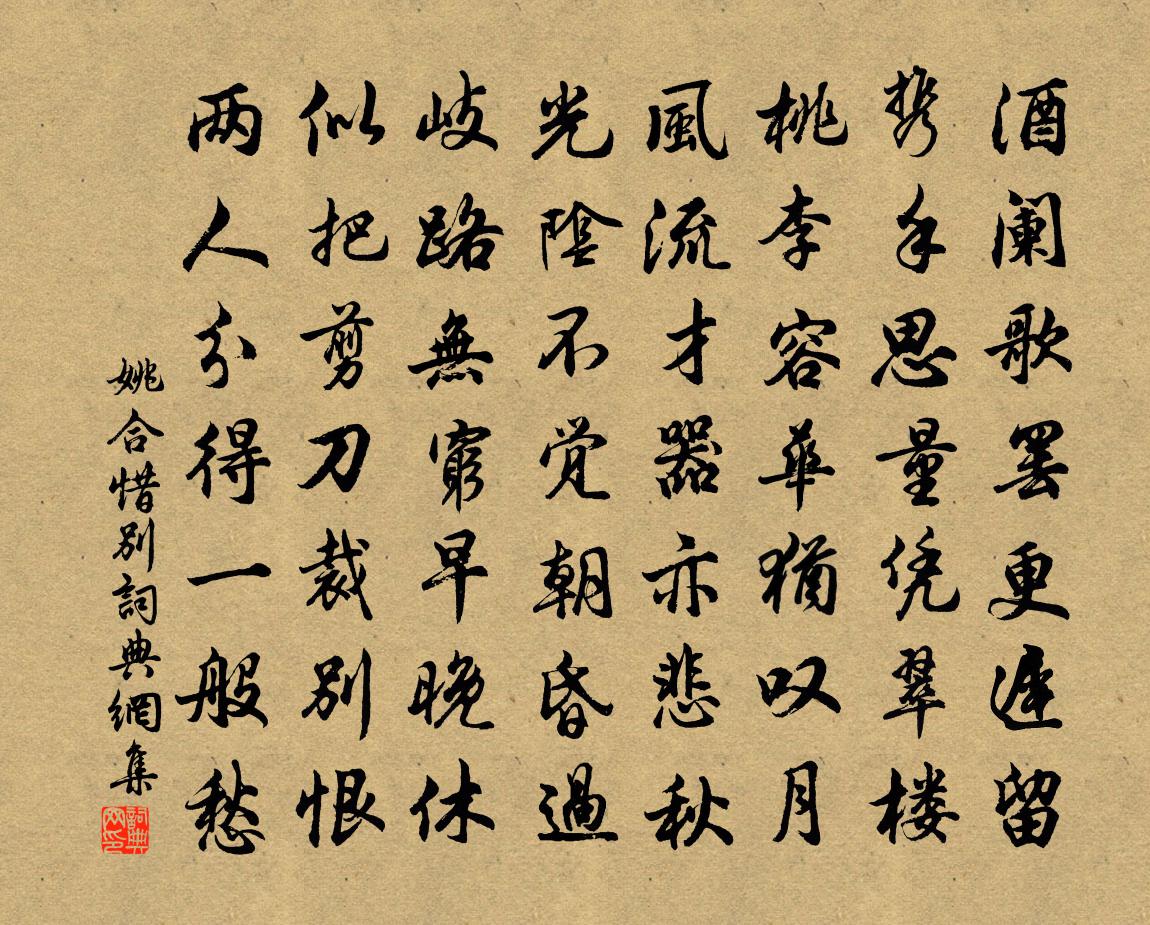 酒阑歌罢更遅留
携手思量凭翠楼
桃李容華猶叹月
風流才器亦悲秋
光陰不觉朝昏過
岐路無窮早晚休
似把剪刀裁别恨
两人分得一般愁
姚合惜别詞典網集
詞典网印